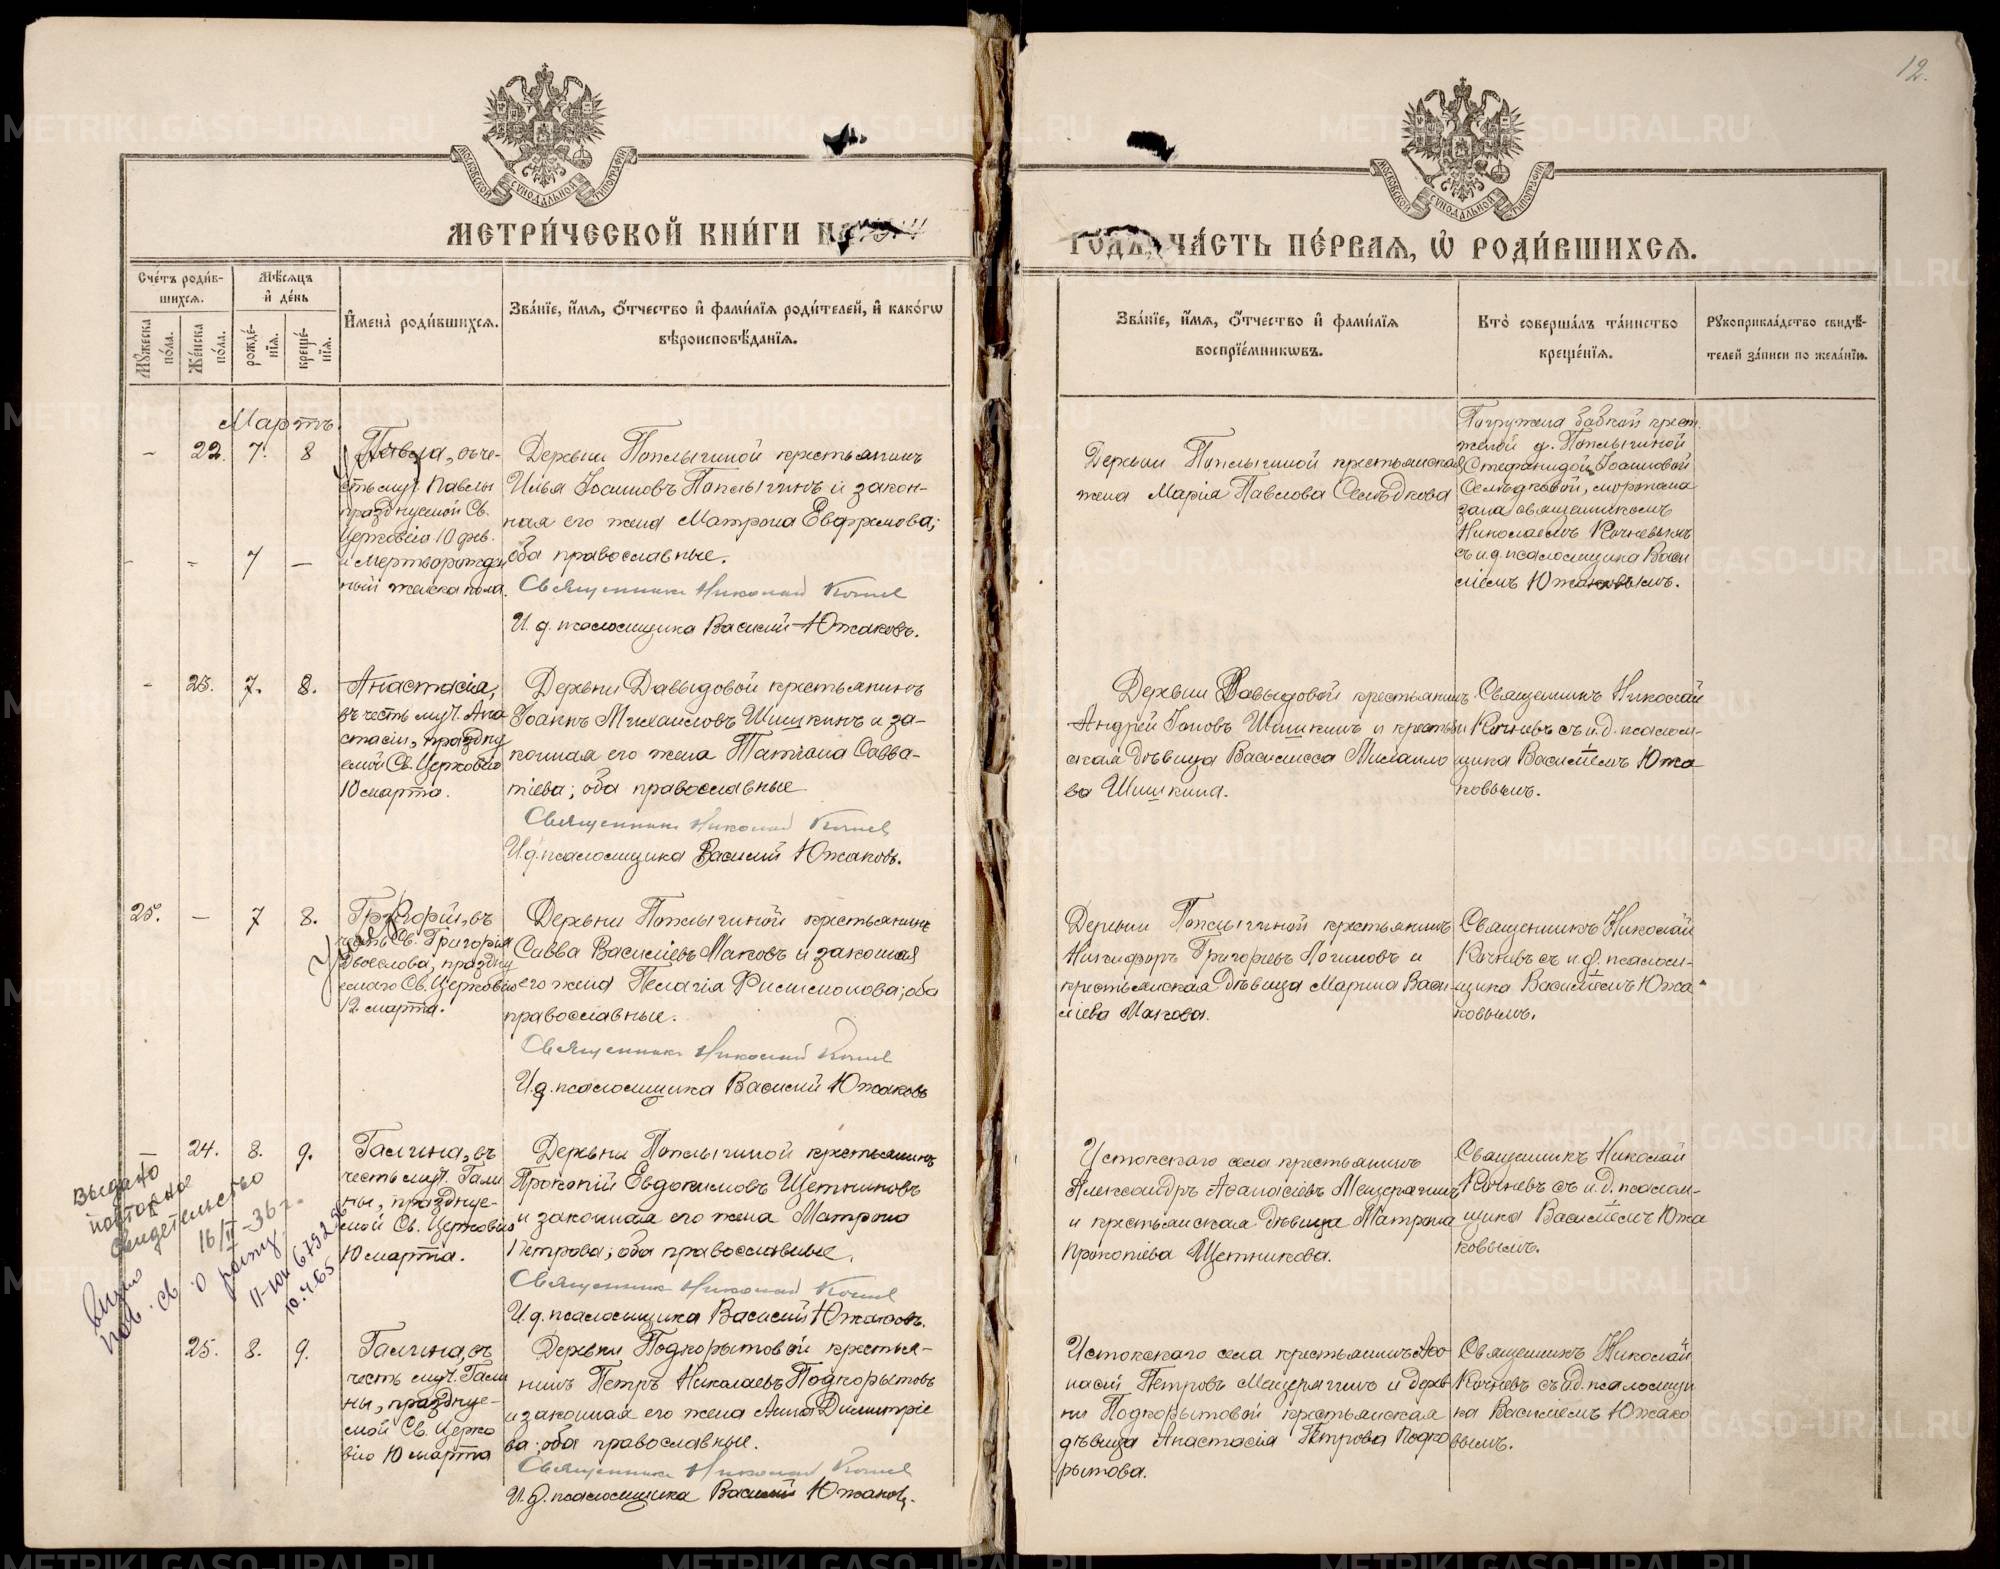 12.
МОСКОВСКОЙ СУНОДАЛЬНОЙ ТИПОГРАФИИ
МОСКОВСКОЙ СУНОДАЛЬНОЙ ТИПОГРАФИИ
МЕТРИ́ЧЕСКОЙ КНИ́ГИ НА 1914
ГОДЪ, ЧА́СТЬ ПЕ́РВАЯ, Ѡ҆ РОДИ́ВШИХСЯ.
Сче́тъ роди́в-
шихся.
Мѣ́сяцъ
и҆ де́нь
Мꙋ́жеска
по́ла.
Же́нска
по́ла.
рожде́-
нїя.
креще́-
нїя.
И҆мена̀ роди́вшихся.
Зва́нїе, и҆́мя, ѻ҆́тчество и҆ фами́лїя роди́телей, и҆ како́гѡ
вѣроисповѣ́данїя.
Зва́нїе, и҆́мя, ѻ҆́тчество и҆ фами́лїя
воспрїе́мникѡвъ.
Кто̀ соверша́лъ та́инство
креще́нїя.
Рꙋкоприкла́дство свидѣ́-
телей за́писи по жела́нїю.
Мартъ.
- 22. 7. 8
Павла, въ че-
сть муч. Павлы
празднуемой Св.
Церковію 10 фев.
- - 7 —
и мертворожден
ный женска пола.
Деревни Поплыгиной крестьянинъ
Илья Іоанновъ Поплыгинъ и закон-
ная его жена Матрона Евфремова;
оба православные.
Священникъ Николай Кочнев
И. д. псаломщика Василий Южаковъ.
Деревни Поплыгиной крестьянская
жена Марія Павлова Селѣдкова
Погружена бабкой крест.
женой д. Поплыгиной
Стефанидой Іоанновой
Селѣдковой, миропома
зана священникомъ
Николаемъ Кочневымъ
съ и.д. псаломщика Васи
ліемъ Южаковымъ.
- 23. 7. 8.
Анастасія,
въ честь муч. Ана
стасіи, праздну
емой Св. Церковію
10 марта.
Деревни Давыдовой крестьянинъ
Іоаннъ Михаиловъ Шишкинъ и за-
конная его жена Татіана Савва-
тіева; оба православные
Священникъ Николай Кочнев
И.д. псаломщика Василий Южаковъ.
Деревни Давыдовой крестьянинъ
Андрей Іоновъ Шишкинъ и крестьян
ская дѣвица Василисса Михаило
ва Шишкина.
Священникъ Николай
Кочневъ съ и.д. псалом-
щика Василіемъ Южа
ковымъ.
25. — 7 8.
Григорій, въ
честь Св. Григорія
Двоеслова, праздну
емаго Св. Церковію
12 марта.
Деревни Поплыгиной крестьянинъ
Савва Василіевъ Маковъ и законная
его жена Пелагія Филимонова; оба
православные.
Священникъ Николай Кочнев
И.д. псаломщика Василий Южаковъ
Деревни Поплыгиной крестьянинъ
Никифоръ Григорьевъ Логиновъ и
крестьянская дѣвица Марина Васи-
ліева Макова.
Священникъ Николай
Кочневъ съ и.д. псалом-
щика Василіемъ Южа-
ковымъ.
- 24. 8. 9.
Галина, въ
честь муч. Гали
ны, праздnуе-
мой Св. Церковію
10 марта.
Деревни Поплыгиной крестьянинъ
Прокопій Евдокимовъ Щетниковъ
и законная его жена Матрона
Петрова; оба православные.
Священникъ Николай Кочнев
И.д. псаломщика Василий Южаковъ.
Истокскаго села крестьянинъ
Александръ Аѳанасіевъ Мещерягинъ
и крестьянская дѣвица Матрона
Прокопіева Щетникова.
Священникъ Николай
Кочневъ съ и.д. псалом-
щика Василіемъ Южа
ковымъ.
Выдано
повторное
свидетельство
16/II-36 г.
II-ЮИ 679236
10.4.65
25. 8. 9.
Галина, въ
честь муч. Гали
ны, праздnуе-
мой Св. Церко
вію 10 марта
Деревни Подкорытовой крестья-
нинъ Петръ Николаевъ Подкорытовъ
и законная его жена Анна Димитріе
ва; оба православные.
Священникъ Николай Кочнев
И.д. псаломщика Василий Южаковъ.
Истокскаго села крестьянинъ Аѳо
насій Петровъ Мещерягинъ и дерев
ни Подкорытовой крестьянская
дѣвица Анастасія Петрова Подко
рытова.
Священникъ Николай
Кочневъ съ и.д. псаломщи
ка Василіемъ Южако
вымъ.
METRIKI.GASO-URAL.RU